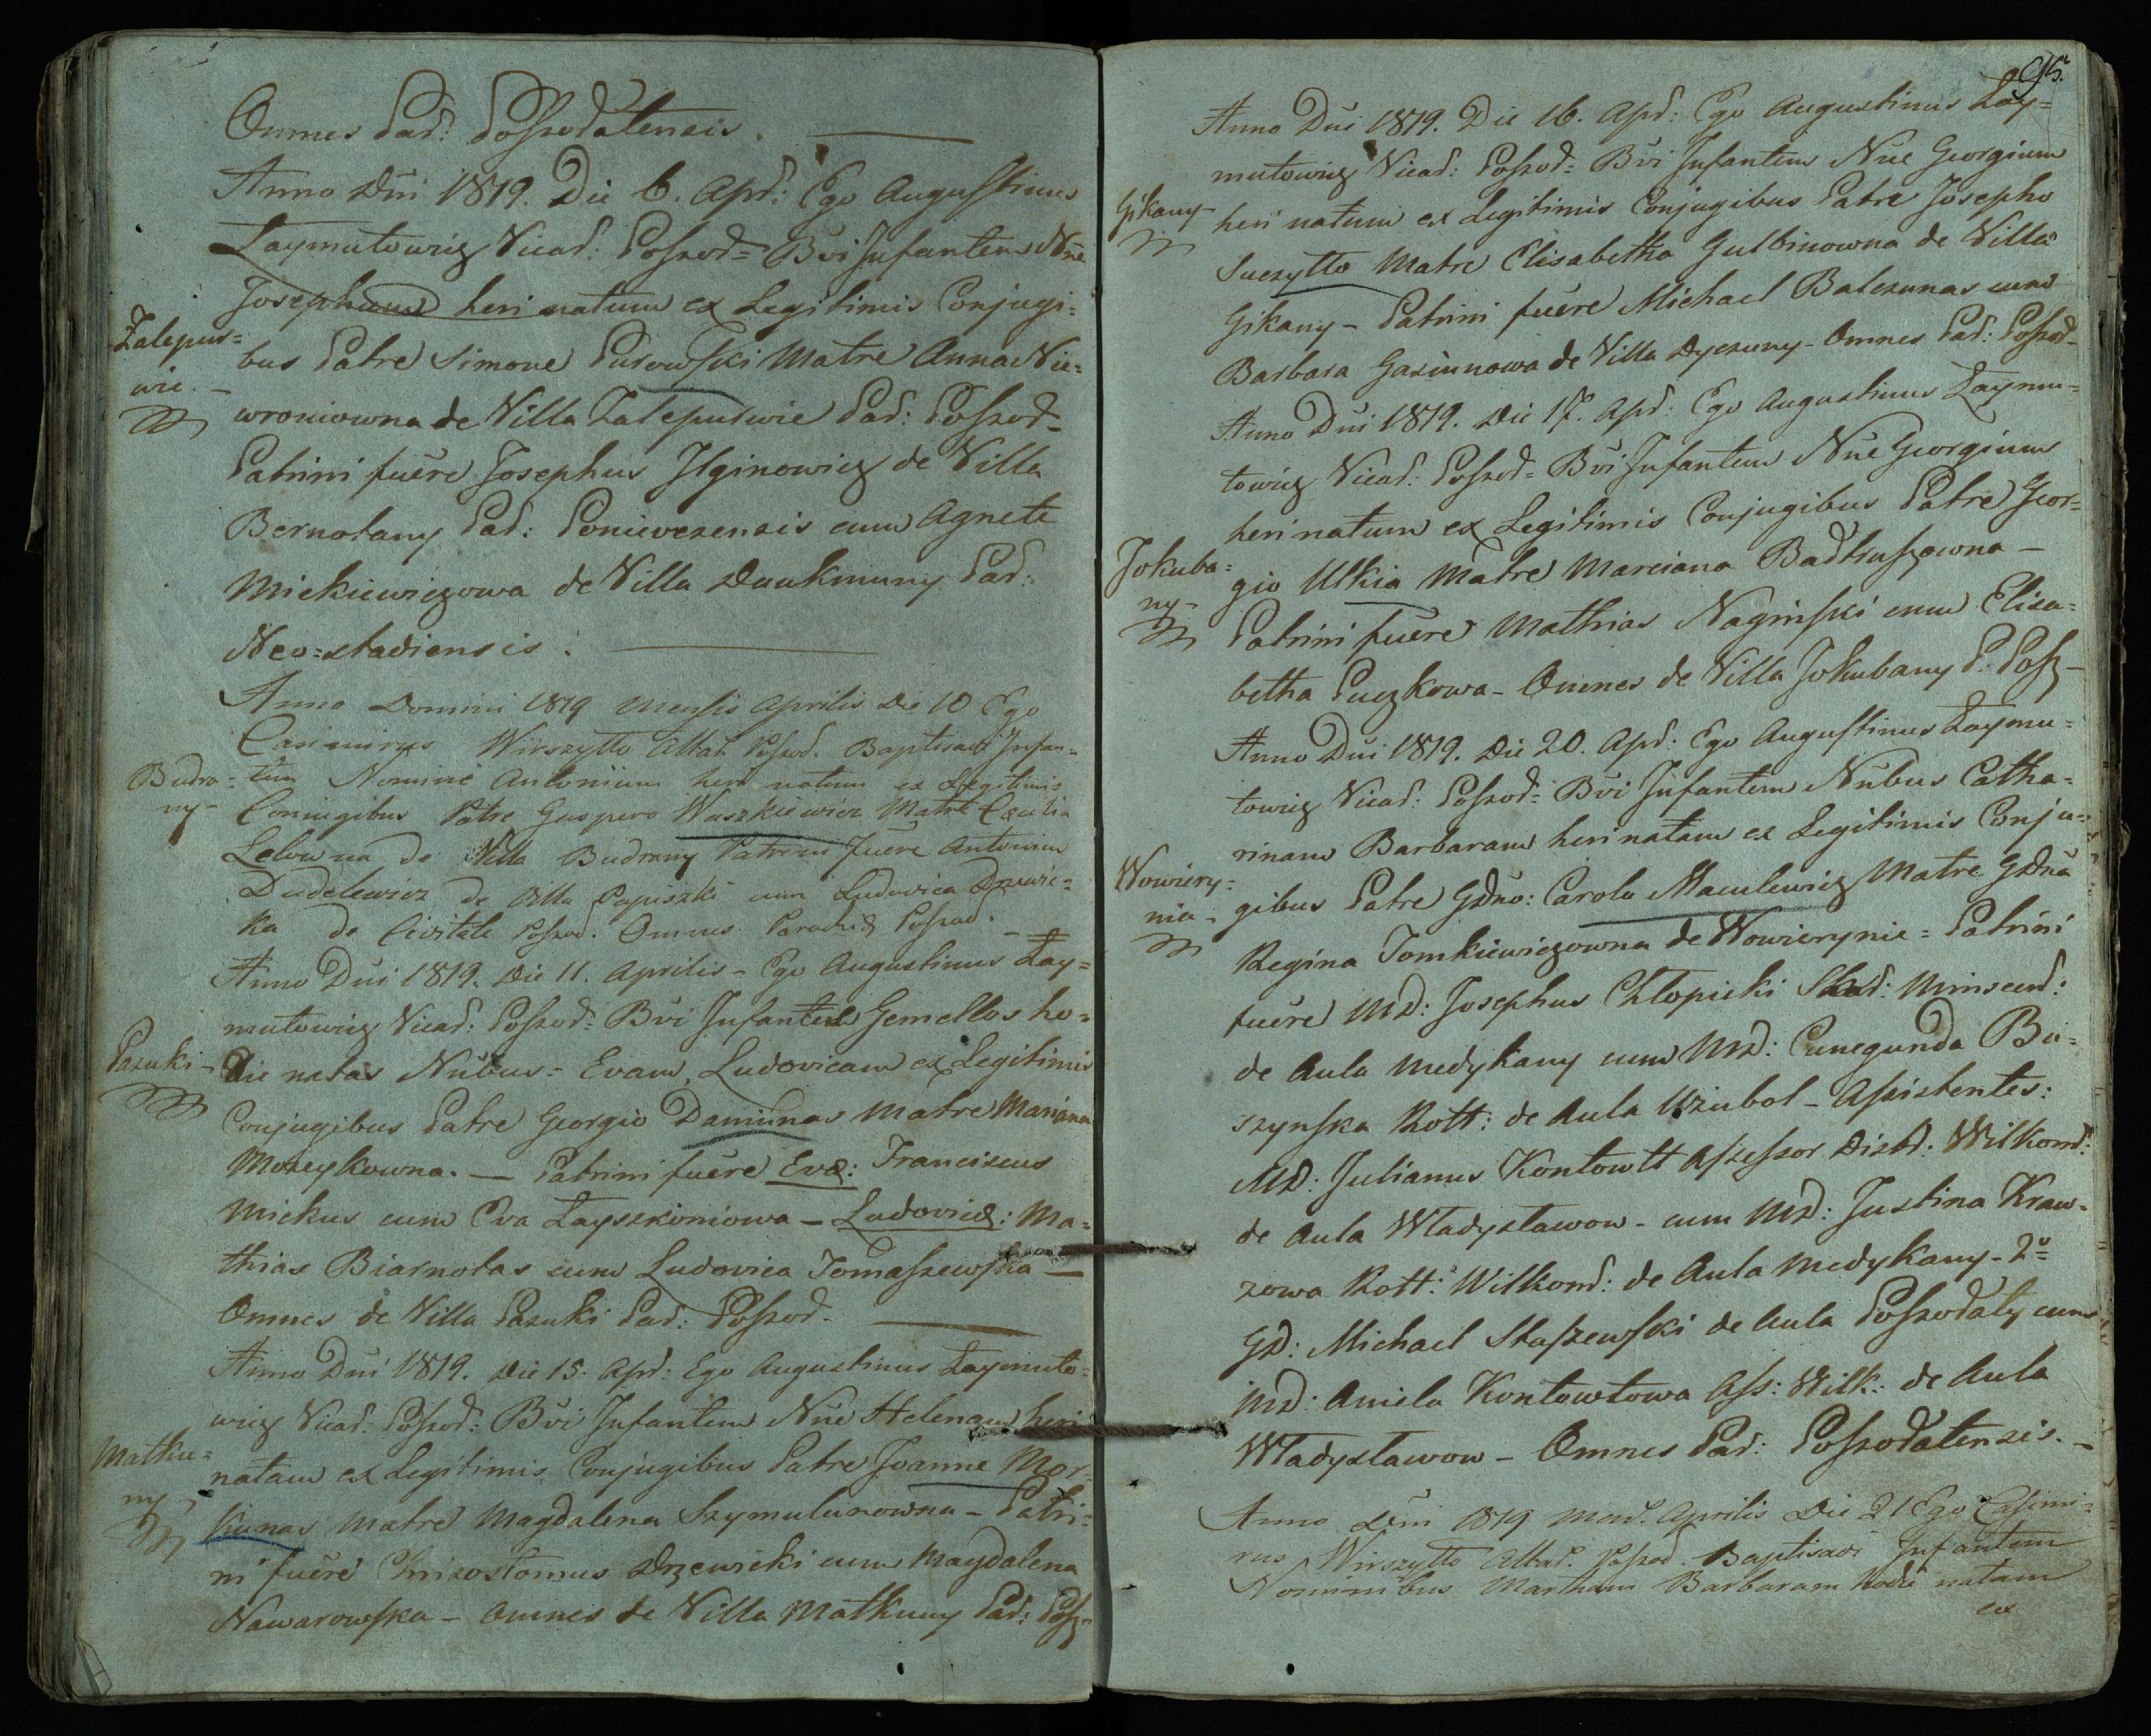 Omnes Par: Poszodatensis.
Anno Dni 1819. Die 6. Apr: Ego Augustinus
Laymutowicz Vicar: Poszod= Bvi Infantem Nne
Josephum heri natum ex Legitimis Conjugi=
Zalepus=
wie.-
bus Patre Simone Purowski Matre Anna Nie=
wroniowna de Villa Zalepuswie Par: Poszod-
Patrini fuere Josephus Ilginowicz de Villa
Bernotany Par: Ponievezensis cum Agnete
Mickiewiczowa de Villa Daukniuny Par:
Neo=stadiensis.
Anno Domini 1819 Mensis Aprilis Die 10 Ego
Casimirus Wirszytto Altar. Poszod. Baptisavi Infan=
Budra=
ny-
tem Nomine Antonium heri natum ex Legitimis
Coniugibus Patre Gaspero Waszkiewicz Matre Cæcilia
Lelowna de Villa Budrany Patrini fuere Antonius
Dudelewicz de Villa Papiszki cum Ludovica Drzewic=
ka de Civitate Poszod. Omnes Parochiæ Poszod.
Anno Dni 1819. Die 11. Aprilis - Ego Augustinus Lay=
mutowicz Vicar: Poszod= Bvi Infantes Gemellos ho=
Pazuki-
die natas Nnbus= Evam, Ludovicam ex Legitimis
Conjugibus Patre Georgio Daminas Matre Mariana
Mozeykowna. — Patrini fuere Evæ: Franciscus
Mickus cum Eva Layszkoniowa - Ludovicæ: Ma=
thias Biarnotas cum Ludovica Tomaszewska —
Omnes de Villa Pazuki Par: Poszod.
Anno Dni 1819. Die 15. Apr: Ego Augustinus Laymuto=
wicz Vicar: Poszod: Bvi Infantem Nne Helenam heri
Matku=
ny-
natam ex Legitimis Conjugibus Patre Joanne Mor=
kunas Matre Magdalena Szymulunowna - Patri=
ni fuere Chrizostomus Drzewicki cum Magdalena
Nawarowska - Omnes de Villa Matkuny Par: Posz-
95.
Anno Dni 1819. Die 16. Apr: Ego Augustinus Lay=
mutowicz Vicar: Poszod= Bvi Infantem Nne Georgium
Gikany-
heri natum ex Legitimis Conjugibus Patre Josepho
Suszytto Matre Elisabetha Gulbinowna de Villa
Gikany - Patrini fuere Michael Balczunas cum
Barbara Gasiunowa de Villa Dyczuny - Omnes Par: Poszod-
Anno Dni 1819. Die 17. Apr: Ego Augustinus Laymu=
towicz Vicar: Poszod= Bvi Infantem Nne Georgium
heri natum ex Legitimis Conjugibus Patre Geor=
Jokuba=
ny-
gio Utkia Matre Marciana Badtruszowna -
Patrini fuere Mathias Naginski cum Elisa=
betha Puczkowa - Omnes de Villa Jokubany P: Posz-
Anno Dni 1819. Die 20. Apr: Ego Augustinus Laymu=
towicz Vicar: Poszod= Bvi Infantem Nnbus Catha=
rinam Barbaram heri natam ex Legitimis Conju=
Wowiery=
nia-
gibus Patre Gdno: Carolo Maculewicz Matre Gdna
Regina Tomkiewiczowna de Wowierynie = Patrini
fuere MD: Josephus Chlopicki Minscens:
de Aula Medykany cum MD: Cunegunda Bu=
szynska Rott: de Aula Uziubol - Assistentes:
MD: Julianus Kontowtt Assessor Distr. Wilkom:
de Aula Wladyslawow - cum MD: Justina Kraw=
zowa Rott: Wilkom: de Aula Medykany - 2º=
GD: Michael Staszewski de Aula Poszodaty cum
MD: Aniela Kontowtowa Ass: Wilk: de Aula
Wladyslawow - Omnes Par: Poszodatensis. -
Anno Dni 1819 Mens. Aprilis Die 21 Ego Casimi=
rus Wirszytto Altar. Poszod. Baptisavi Infantem
Nominibus Martham Barbaram hodie natam
ex